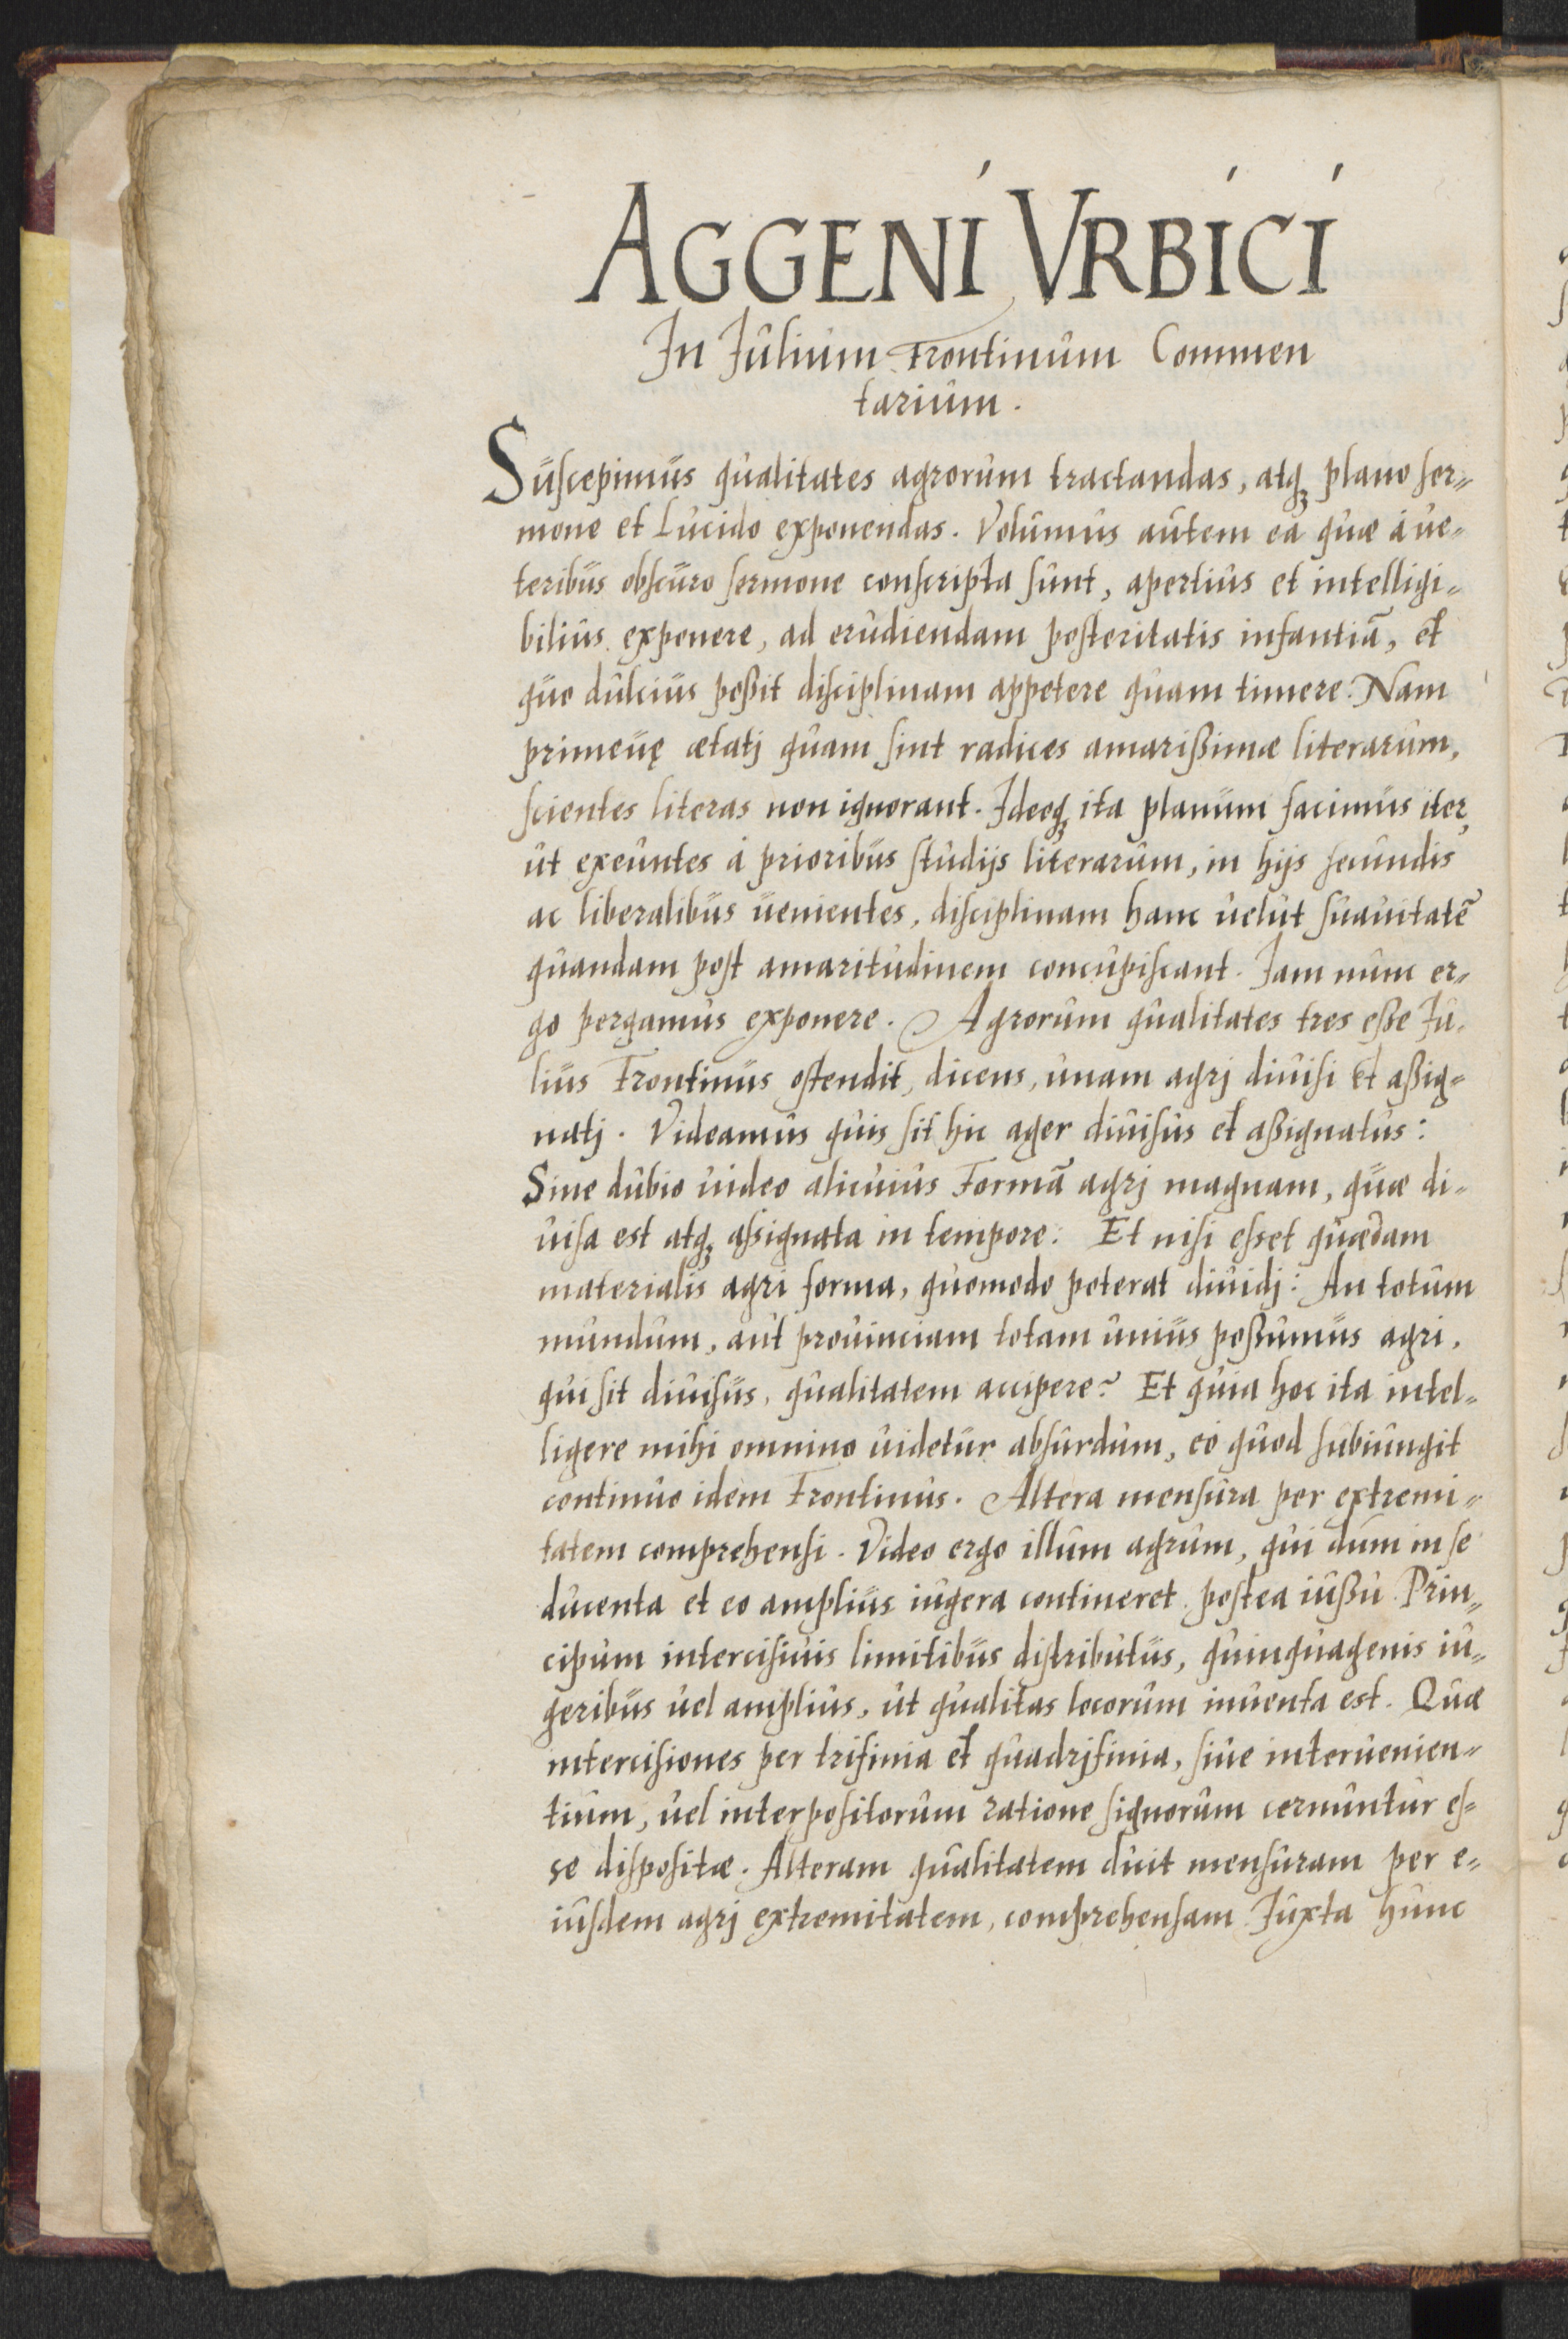 AGGENI VRBICI
In Iulium Frontinum Commen
tarium.
Suscepimus qualitates agrorum tractandas, atqꝫ plano ser-
mone et Lucido exponendas. Volumus autem ea quæ á ue-
teribus obscuro sermone conscripta sunt, apertius et intelligi-
bilius exponere, ad erudiendam posteritatis infantiā, et
quo dulcius poßit disciplinam appetere quam timere. Nam
primeuę ætatj quam sint radices amarißimæ literarum,
scientes literas non ignorant. Ideoqꝫ ita planum facimus iter,
ut exeuntes á prioribus studijs literarum, in hijs secundis
ac liberalibus uenientes, disciplinam hanc uelut suauitatē
quandam post amaritudinem concupiscant. Iam nunc er-
go pergamus exponere. Agrorum qualitates tres eße Iu-
lius Frontinus ostendit, dicens, unam agrj diuisi et aßig-
natj. Videamus quis sit hic ager diuisus et aßignatus:
Sine dubio uideo alicuius Formā agrj magnam, quæ di-
uisa est atqꝫ assignata in tempore: Et nisi esset quædam
materialis agri forma, quomodo poterat diuidj: An totum
mundum, aut prouinciam totam unius poßumus agri,
qui sit diuisus, qualitatem accipere? Et quia hoc ita intel-
ligere mihi omnino uidetur absurdum, eó quod subiungit
continuo idem Frontinus. Altera mensura per extremi-
tatem comprehensi. Video ergo illum agrum, qui dum in se
ducenta et eo amplius iugera contineret, postea iußu Prin-
cipum intercisiuis limitibus distributus, quinquagenis iu-
geribus uel amplius, ut qualitas locorum inuenta est. Quæ
intercisiones per trifinia et quadrjfinia, siue interuenien-
tium, uel interpositorum ratione signorum cernuntur es-
se dispositæ. Alteram qualitatem ducit mensuram per e-
iusdem agrj extremitatem, comprehensam. Iuxta hunc